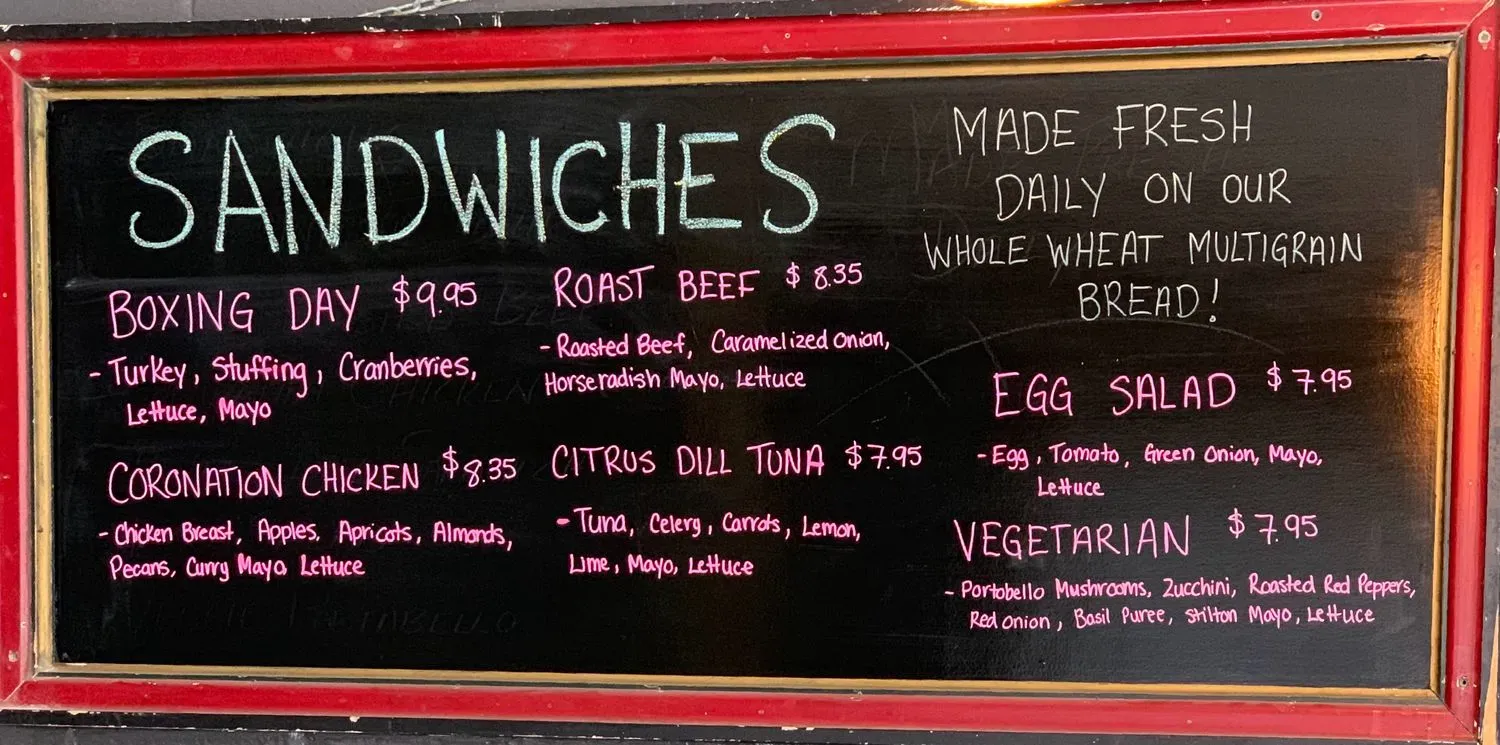 SANDWICHES
BOXING DAY $9.95
- Turkey, Stuffing, Cranberries,
Lettuce, Mayo
CORONATION CHICKEN $8.35
- Chicken Breast, Apples, Apricots, Almonds,
Pecans, Curry Mayo Lettuce
ROAST BEEF $8.35
- Roasted Beef, Caramelized Onion,
Horseradish Mayo, Lettuce
CITRUS DILL TUNA $7.95
- Tuna, Celery, Carrots, Lemon,
Lime, Mayo, Lettuce
MADE FRESH
DAILY ON OUR
WHOLE WHEAT MULTIGRAIN
BREAD!
EGG SALAD $7.95
- Egg, Tomato, Green Onion, Mayo,
Lettuce
VEGETARIAN $7.95
- Portobello Mushrooms, Zucchini, Roasted Red Peppers,
Red Onion, Basil Puree, Stilton Mayo, Lettuce